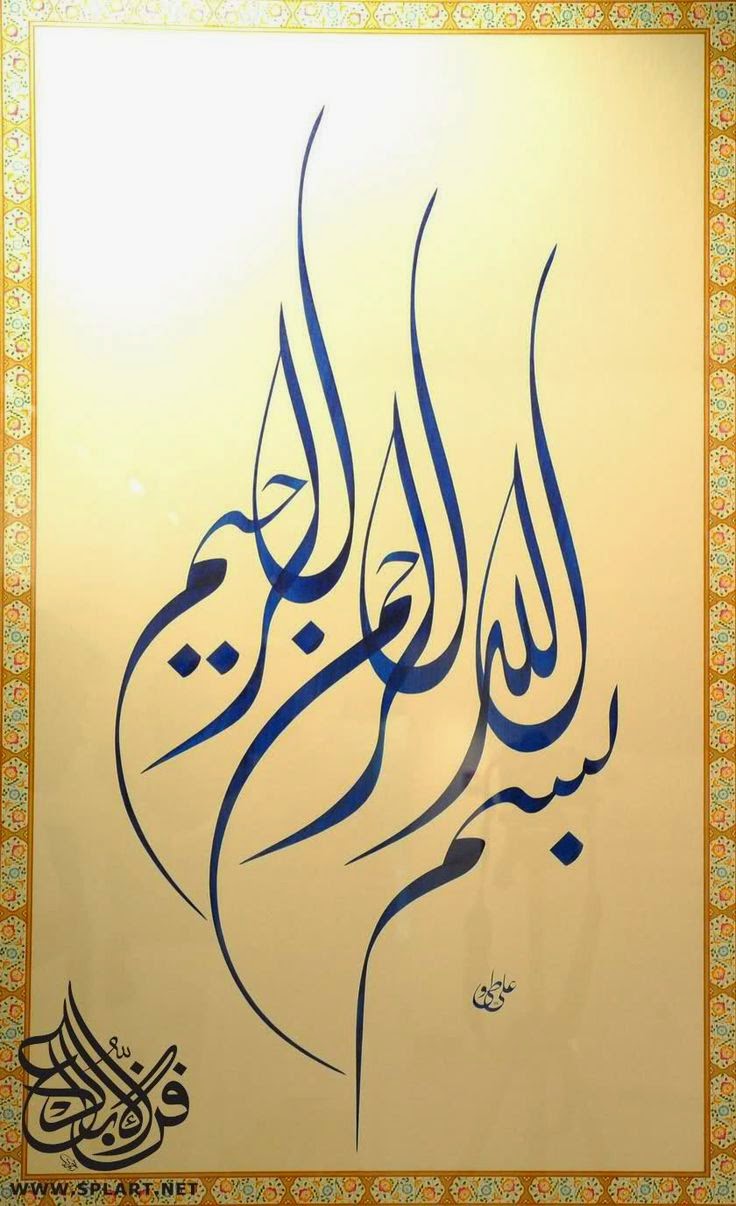 بسم الله الرحمن الرحيم
فن الإبداع
WWW.SPLART.NET